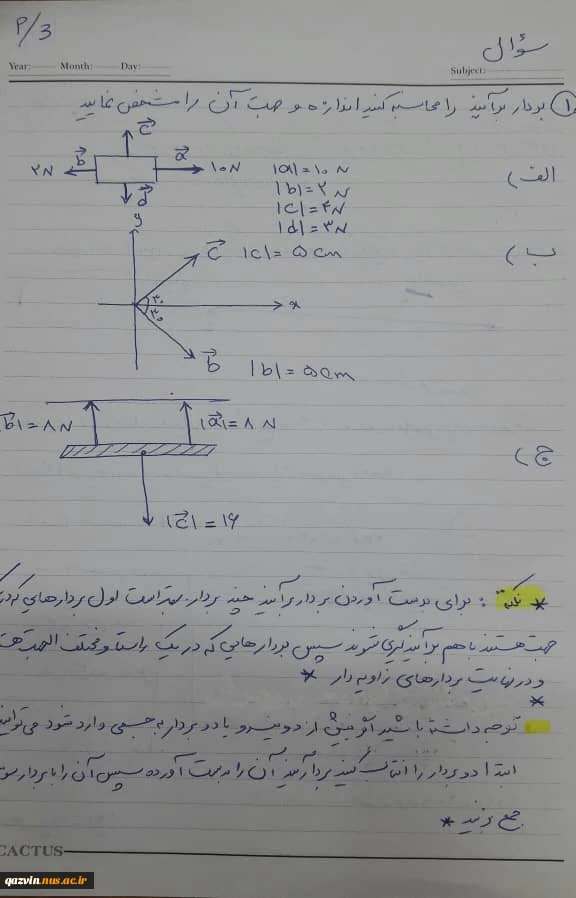 P/3
سؤال
Year: Month: Day: Subject:
۱) بردار برآیند را محاسبه کنید اندازه و جهت آن را مشخص نمایید
الف)
c
b a
۲N ۱۰N
d
|a| = ۱۰ N
|b| = ۲ N
|c| = ۴N
|d| = ۳N
ب)
y
c |c| = ۵ cm
۳۰
x
۳۰
b |b| = ۵cm
ج)
|b| = ۸ N |a| = ۸ N
|c| = ۱۶
* نکته : برای بدست آوردن بردار برآیند چند بردار. بهتر است اول بردارهایی که در
جهت هستند با هم برآیندگیری شوند سپس بردارهایی که در یک راستا و مختلف الجهت
و در نهایت بردارهای زاویه دار *
*
توجه داشته باشید اگر بیش از دو نیرو یا دو بردار به جسمی وارد شود
ابتدا دو بردار را انتخاب کنید برآیند آن را بدست آورده سپس آن را با بردار
جمع بزنید *
CACTUS
qazvin.nus.ac.ir